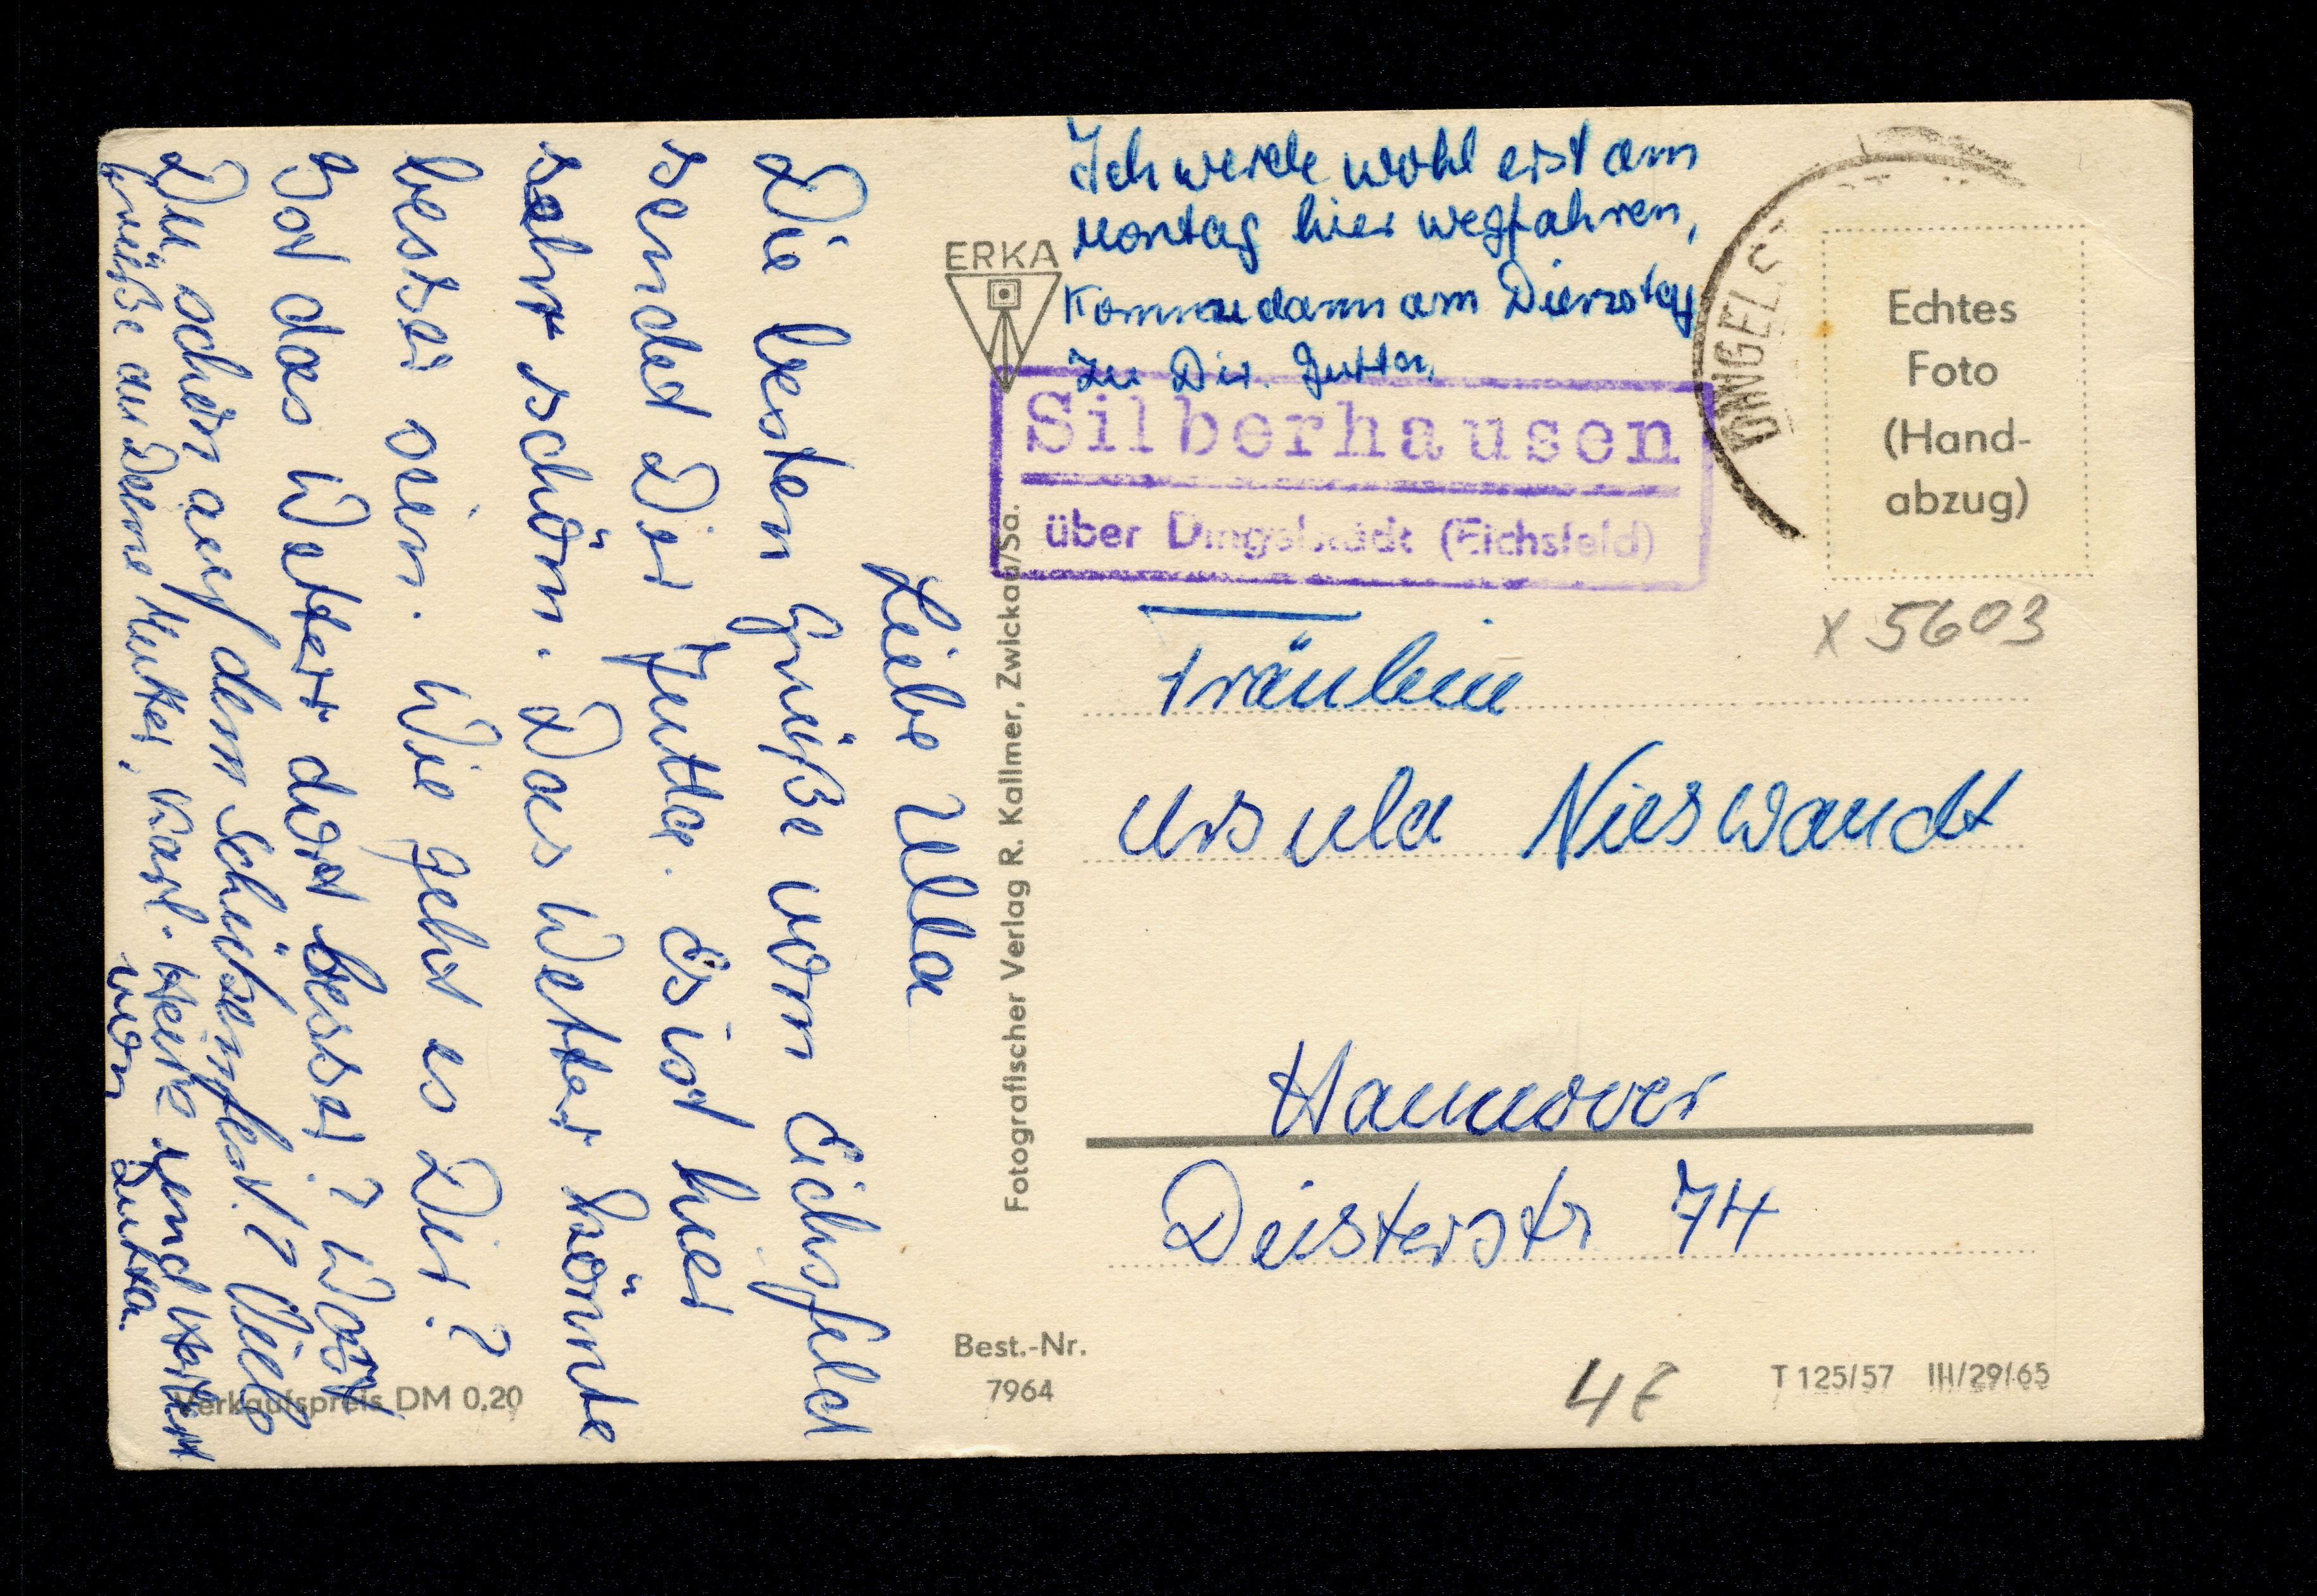 Liebe Ulla
Die besten Grüße vom Eichsfeld
sendet Dir Jutta. Es ist hier
sehr schön. Das Wetter könnte
besser sein. Wie geht es Dir?
Ist das Wetter dort besser? Warst
Du schon auf dem Schützenfest? Viele
Grüße an Deine Mutter, Karl-Heinz und
von Jutta.
Verkaufspreis DM 0,20
ERKA
Fotografischer Verlag R. Kallmer, Zwickau/Sa.
Best.-Nr.
7964
Ich werde wohl erst am
Montag hier wegfahren,
Komme dann am Dienstag
zu Dir. Jutta.
Silberhausen
über Dingelstädt (Eichsfeld)
DINGELST
Echtes
Foto
(Hand-
abzug)
x 5603
Fräulein
Ursula Nieswandt
Hannover
Deisterstr 74
T 125/57 III/29/65